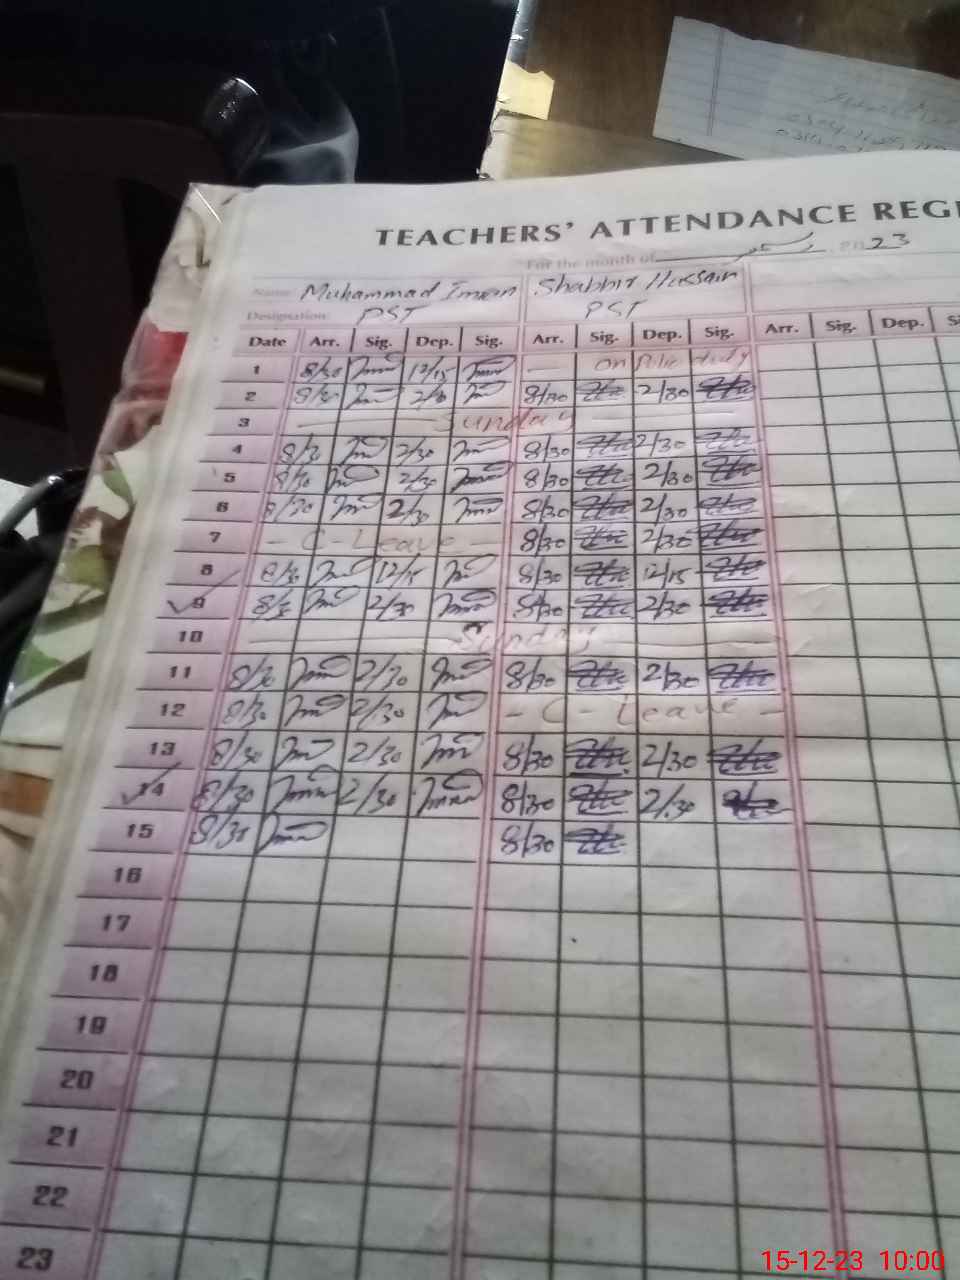 TEACHERS' ATTENDANCE REGI
For the month of 2023
Name: Muhammad Imran Shabbir Hussain
Designation: PST PST
Date Arr. Sig. Dep. Sig. Arr. Sig. Dep. Sig. Arr. Sig. Dep. Si
1 8/30 12/15 — on Polio duty
2 8/30 2/30 8/30 2/30
3 Sunday
4 8/30 2/30 8/30 2/30
5 8/30 2/30 8/30 2/30
6 8/30 2/30 8/30 2/30
7 - C - Leave - 8/30 2/30
8 8/30 12/15 8/30 12/15
9 8/30 2/30 8/30 2/30
10 Sunday
11 8/30 2/30 8/30 2/30
12 8/30 2/30 - C - Leave -
13 8/30 2/30 8/30 2/30
14 8/30 2/30 8/30 2/30
15 8/30 8/30
16
17
18
19
20
21
22
23
15-12-23 10:00